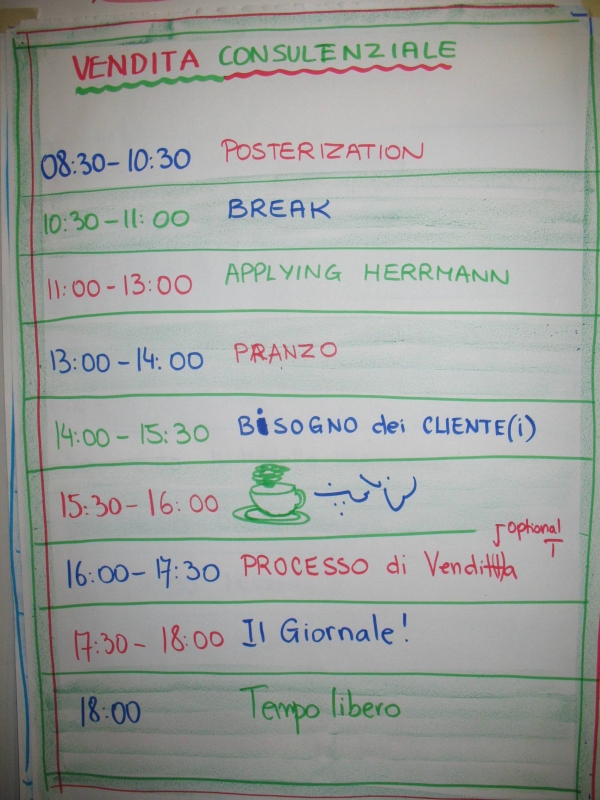 VENDITA CONSULENZIALE
08:30-10:30 POSTERIZATION
10:30-11:00 BREAK
11:00-13:00 APPLYING HERRMANN
13:00-14:00 PRANZO
14:00-15:30 BiSOGNO dei CLIENTE(i)
15:30-16:00
optional
T
16:00-17:30 PROCESSO di Vendita
17:30-18:00 Il Giornale!
18:00 Tempo libero